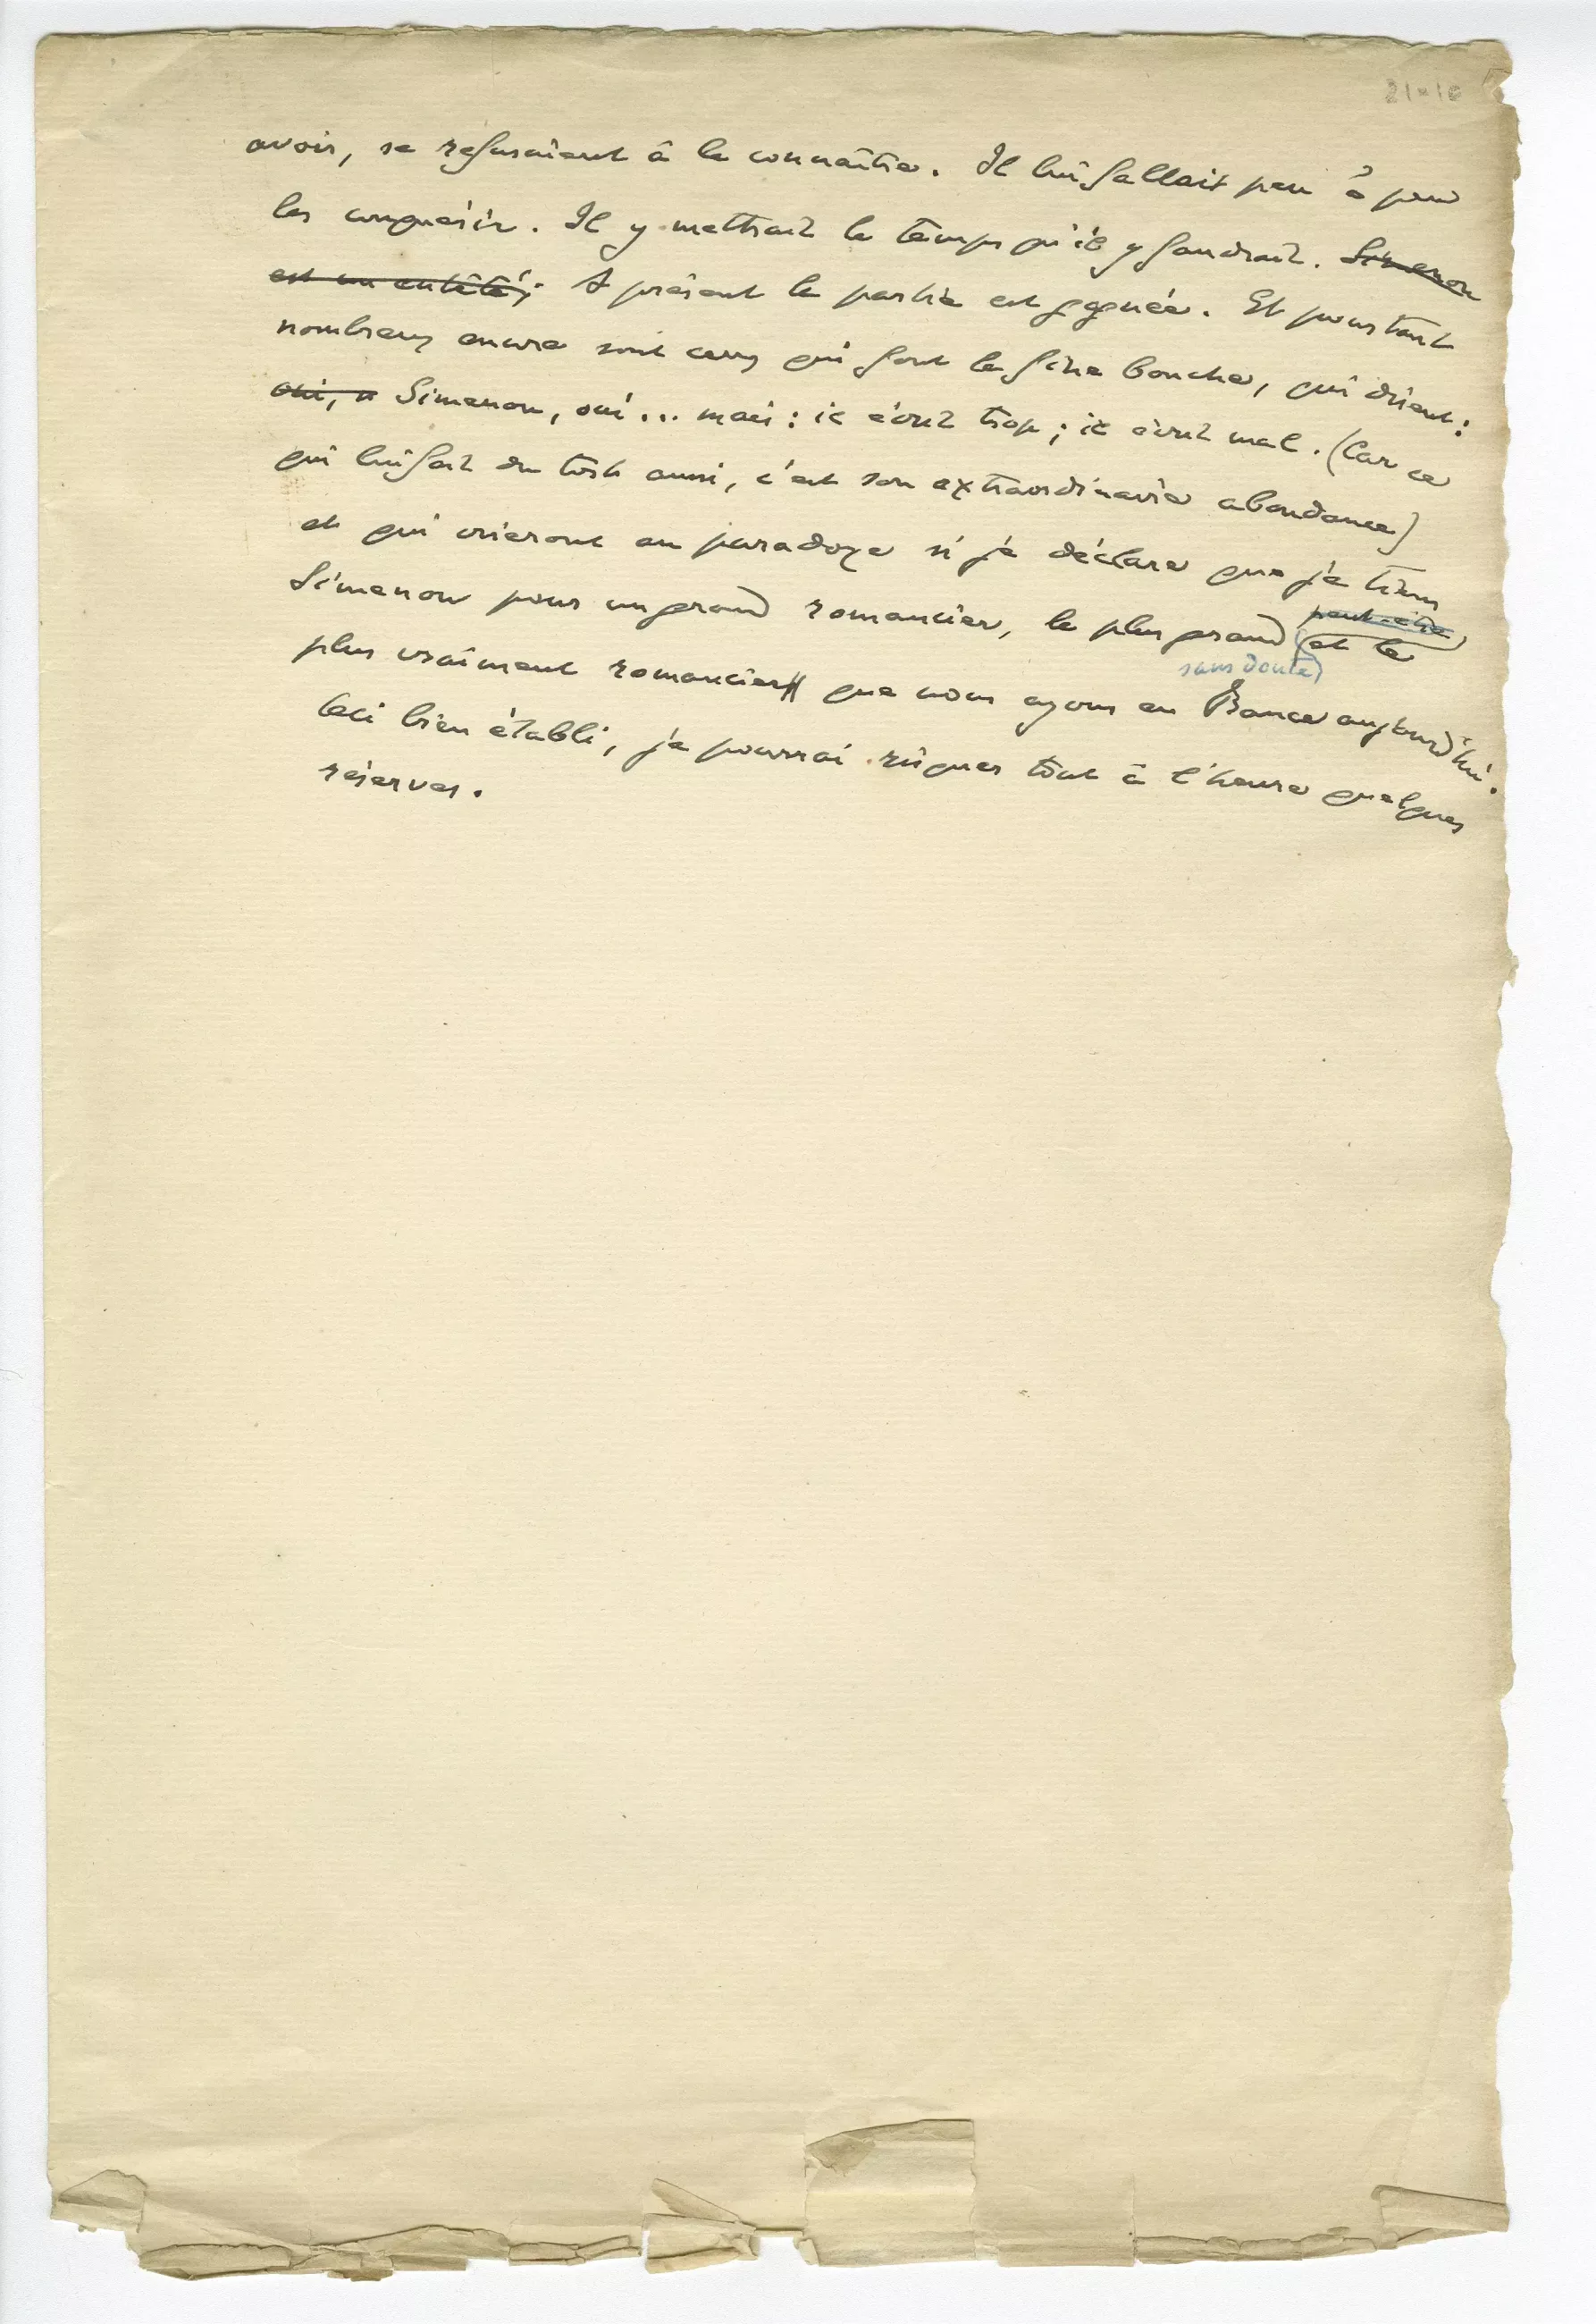 avoir, se refusaient à le connaître. Il lui fallait peu à peu
les conquérir. Il y mettrait le temps qu'il y faudrait. Simenon
est un entêté; A présent la partie est gagnée. Et pourtant
nombreux encore sont ceux qui font la fine bouche, qui disent:
oui, Simenon, oui... mais: il écrit trop; il écrit mal. (Car ce
qui lui fait du tort aussi, c'est son extraordinaire abondance)
et qui crieront au paradoxe si je déclare que je tiens
Simenon pour un grand romancier, le plus grand peut-être et le
sans doute
plus vraiment romancier que nous ayons en France aujourd'hui.
Ceci bien établi, je pourrai risquer tout à l'heure quelques
réserves.